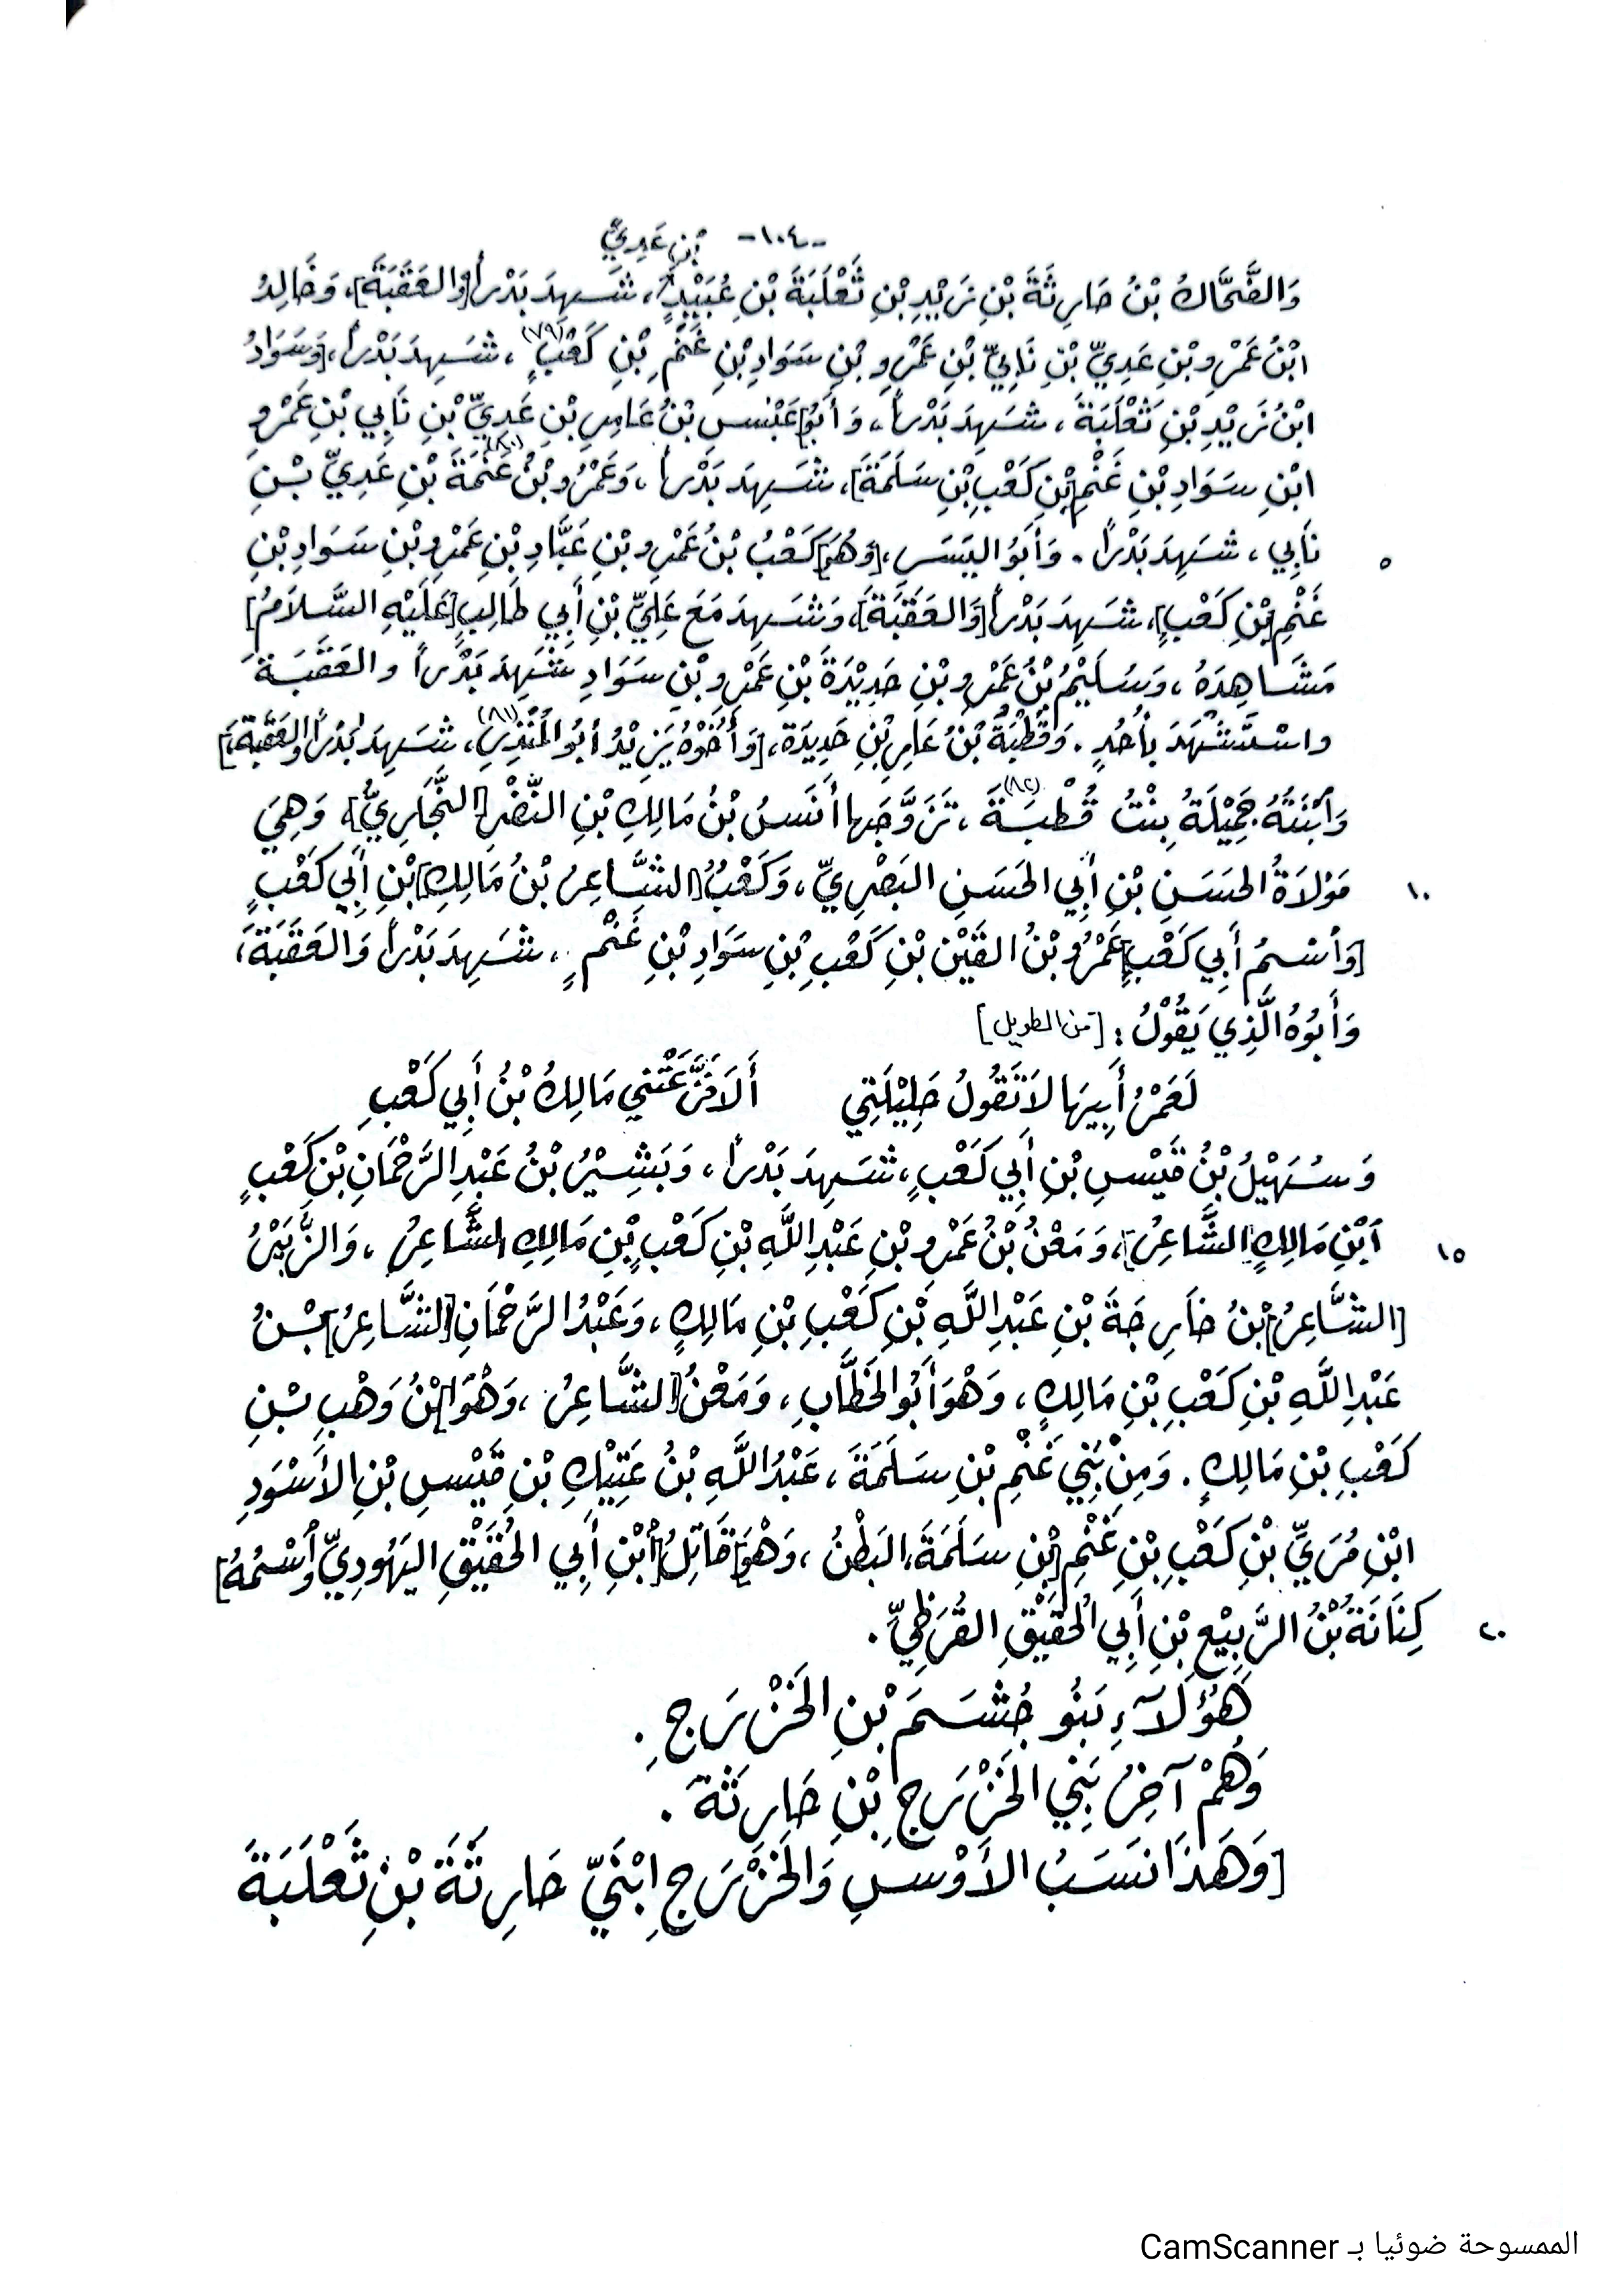 -١٠٤-
بْنِ عَدِيٍّ
وَالضَّحَّاكُ بْنُ حَارِثَةَ بْنِ زَيْدِ بْنِ ثَعْلَبَةَ بْنِ عُبَيْدٍ، شَهِدَ بَدْراً [وَالعَقَبَةَ]، وَخَالِدُ
ابْنُ عَمْرِو بْنِ عَدِيِّ بْنِ نَابِيِّ بْنِ عَمْرِو بْنِ سَوَادِ بْنِ غَنْمِ بْنِ كَعْبٍ (٧٩)، شَهِدَ بَدْراً، [وَسَوَادُ
ابْنُ زَيْدِ بْنِ ثَعْلَبَةَ، شَهِدَ بَدْراً، وَأَبُو] عَبْسِ بْنُ عَامِرِ بْنِ عَدِيِّ بْنِ نَابِي بْنِ عَمْرِو
ابْنِ سَوَادِ بْنِ غَنْمِ [بْنِ كَعْبِ بْنِ سَلَمَةَ]، شَهِدَ بَدْراً، وَعَمْرُو بْنُ عَنَمَةَ (٨٠) بْنِ عَدِيِّ بْنِ
نَابِي، شَهِدَ بَدْراً. وَأَبُو اليَسَرِ، [وَهُوَ] كَعْبُ بْنُ عَمْرِو بْنِ عَبَّادِ بْنِ عَمْرِو بْنِ سَوَادِ بْنِ
٥
غَنْمِ [بْنِ كَعْبٍ]، شَهِدَ بَدْراً [وَالعَقَبَةَ]، وَشَهِدَ مَعَ عَلِيِّ بْنِ أَبِي طَالِبٍ [عَلَيْهِ السَّلاَمُ]
مَشَاهِدَهُ، وَسُلَيْمُ بْنُ عَمْرِو بْنِ حَدِيْدَةَ بْنِ عَمْرِو بْنِ سَوَادِ شَهِدَ بَدْراً والعَقَبَةَ
واسْتُشْهِدَ بِأُحُدٍ. وَقُطْبَةُ بْنُ عَامِرِ بْنِ حَدِيدَةَ، [وَأَخُوْهُ يَزِيْدُ أَبُو المُنْذِرِ (٨١)، شَهِدَ بَدْراً وَالعَقَبَةَ،]
وَابْنَتُهُ جَمِيْلَةُ بِنْتُ قُطْبَةَ (٨٢)، تَزَوَّجَها أَنَسُ بْنُ مَالِكِ بْنِ النَّضْرِ [النَّجَّارِيُّ]، وَهِيَ
مَوْلاَةُ الحَسَنِ بْنِ أَبِي الحَسَنِ البَصْرِيِّ، وَكَعْبُ [الشَّاعِرُ بْنُ مَالِكِ] بْنِ أَبِي كَعْبٍ
١٠
[وَاسْمُ أَبِي كَعْبٍ] عَمْرُو بْنُ القَيْنِ بْنِ كَعْبِ بْنِ سَوَادِ بْنِ غَنْمٍ، شَهِدَ بَدْراً وَالعَقَبَةَ،
وَأَبُوْهُ الَّذِي يَقُوْلُ: [من الطويل]
لَعَمْرُ أَبِيهَا لاَ تَقُولُ حَلِيْلَتِي     أَلاَ فَرَّ عَنِّي مَالِكُ بْنُ أَبِي كَعْبِ
وَسُهَيْلُ بْنُ قَيْسِ بْنِ أَبِي كَعْبٍ، شَهِدَ بَدْراً، وَبَشِيْرُ بْنُ عَبْدِ الرَّحْمَانِ بْنِ كَعْبِ
ابْنِ مَالِكٍ [الشَّاعِرُ]، وَمَعْنُ بْنُ عَمْرِو بْنِ عَبْدِ اللَّهِ بْنِ كَعْبِ بْنِ مَالِكِ الشَّاعِرُ، وَالزُّبَيْرُ
١٥
[الشَّاعِرُ] بْنُ خَارِجَةَ بْنِ عَبْدِ اللَّهِ بْنِ كَعْبِ بْنِ مَالِكٍ، وَعَبْدُ الرَّحْمَانِ [الشَّاعِرُ] بْنُ
عَبْدِ اللَّهِ بْنِ كَعْبِ بْنِ مَالِكٍ، وَهْوَ أَبُو الخَطَّابِ، وَمَعْنُ [الشَّاعِرُ، وَهْوَ] ابْنُ وَهْبِ بْنِ
كَعْبِ بْنِ مَالِكٍ. وَمِنْ بَنِي غَنْمِ بْنِ سَلَمَةَ، عَبْدُ اللَّهِ بْنُ عَتِيْكِ بْنِ قَيْسِ بْنِ الأَسْوَدِ
ابْنِ مُرَيِّ بْنِ كَعْبِ بْنِ غَنْمِ [بْنِ سَلَمَةَ، البَطْنُ، وَهْوَ] قَاتِلُ [ابْنِ أَبِي الحُقَيْقِ اليَهُودِيِّ وَاسْمُهُ]
كِنَانَةُ بْنُ الرَّبِيْعِ بْنِ أَبِي الحُقَيْقِ القُرَظِيِّ.
٢٠
هَؤُلاَءِ بَنُو جُشَمَ بْنِ الخَزْرَجِ.
وَهُمْ آخِرُ بَنِي الخَزْرَجِ بْنِ حَارِثَةَ.
[وَهَذَا نَسَبُ الأَوْسِ وَالخَزْرَجِ ابْنَيْ حَارِثَةَ بْنِ ثَعْلَبَةَ
الممسوحة ضوئيا بـ CamScanner